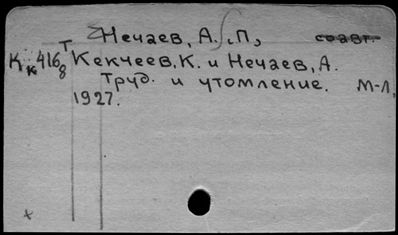 Нечаев, А. П., соавт.
Кк 416/8 т Кекчеев, К. и Нечаев, А.
Труд. и утомление. М-Л,
1927.